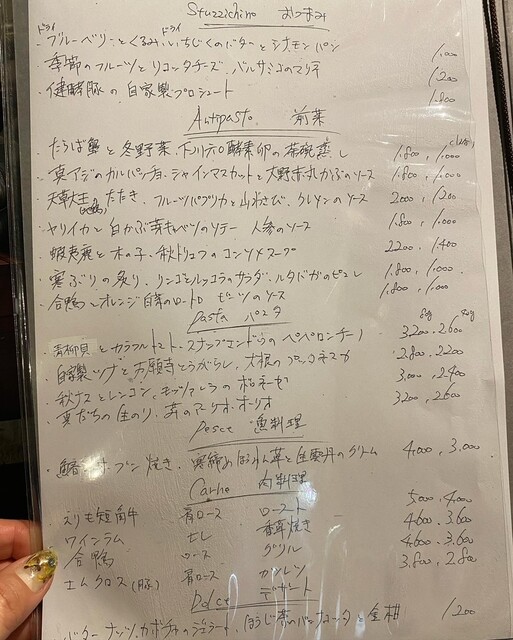 Stuzzichino おつまみ
ドライ ドライ
・ブルーベリーとくるみ、いちじくのバターとシナモンパン 1,000
・季節のフルーツとリコッタチーズ、バルサミコのマリネ 1,200
・健酵豚の自家製プロシュート 1,800
Antipasto 前菜
・たらば蟹と冬野菜、下川六〇酵素卵の茶碗蒸し 1,800, 1,000
・真アジのカルパッチョ、シャインマスカットと大野赤丸かぶのソース 1,800, 1,000
・天草大王 たたき、フルーツパプリカと山わさび、クレソンのソース 2000, 1,200
・ヤリイカと白かぶ芽キャベツのソテー 人参のソース 1,800, 1,000
・蝦夷鹿と木の子、秋トリュフのコンソメスープ 2200, 1,400
・寒ぶりの炙り、リンゴとルッコラのサラダ、ルタバガのピュレ 1,800, 1,000
・合鴨とオレンジ 白菜のロートロ ビーツのソース 1,800, 1,000
Pasta パスタ
・青柳貝とカラフルトマト・スナップエンドウのペペロンチーノ 3,200, 2,600
・自家製ツナとお願寺とうがらし、大根のプッタネスカ 2,800, 2,200
・秋ナスとレンコン、モッツァレラのボロネーゼ 3,000, 2,400
・真だちの生のり、芽のアーリオ・オーリオ 3,200, 2,600
Pesce 魚料理
焼き、寒締めほうれん草と生雲丹のクリーム 4,000, 3,000
Carne 肉料理
・えりも短角牛 肩ロース ロースト 5,000, 4,000
・ワインラム モモ 香草焼き 4,600, 3,600
・合鴨 ロース グリル 4,600, 3,600
(豚) 肩ロース カツレツ 3,800, 2,800
Dolce デザート
・バターナッツカボチャのジェラート、ほうじ茶のパンナコッタと金柑 1,200